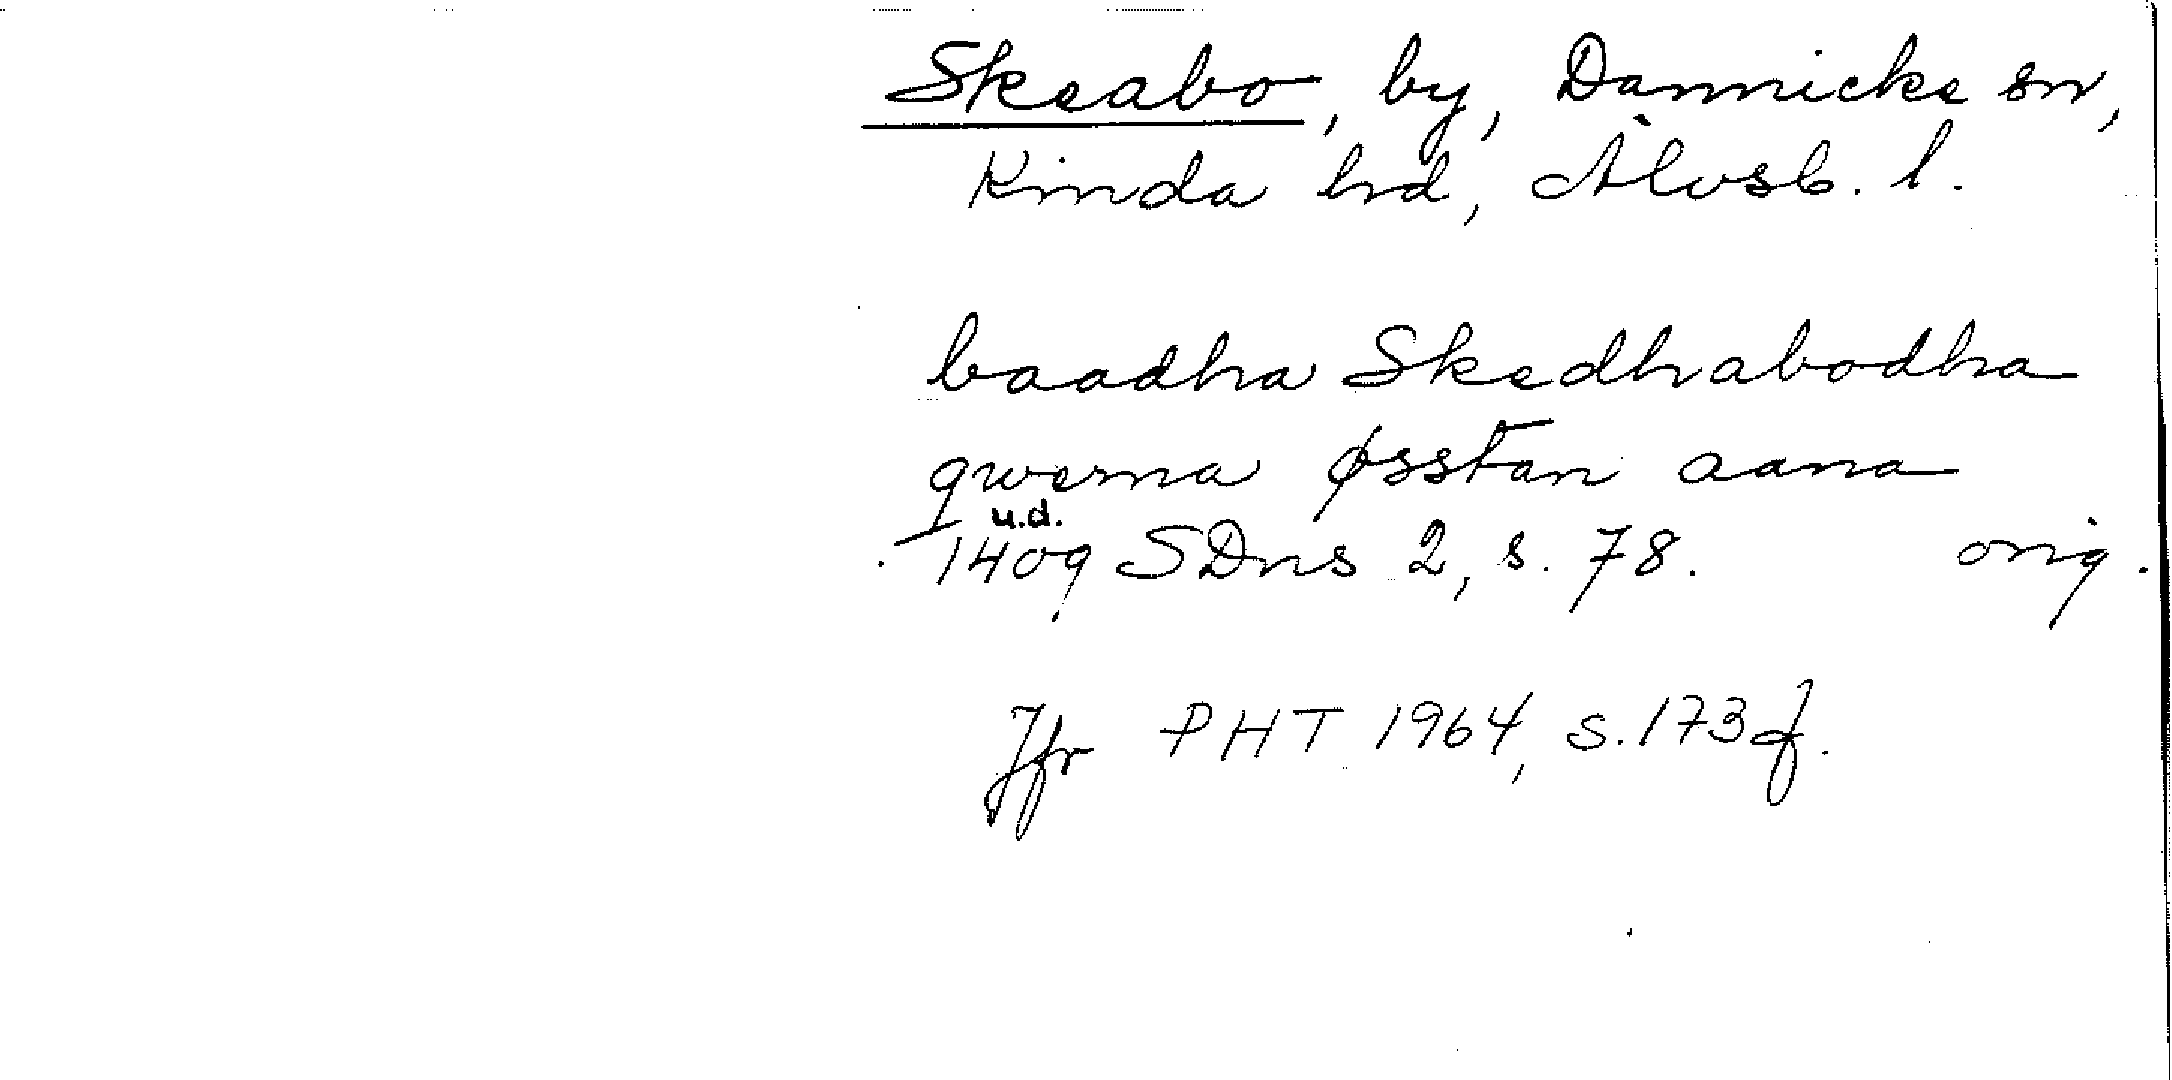 Skeabo, by, Dannicke sn,
Kinda hd, Älvsb. l.
baadha Skedhabodha
qwerna øsstan aana
u.d.
1409 SDns 2, s. 78. orig.
Jfr PHT 1964, s. 173 f.